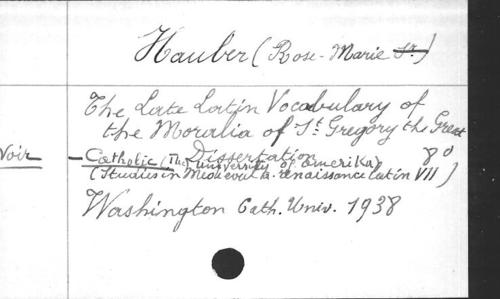 Hauber (Rose-Marie Sr.)
The Late Latin Vocabulary of
the Moralia of St. Gregory the Great
Dissertation 8°
Voir - Catholic (The) university of Amerika
(Studies in Medieval a. renaissance latin VII)
Washington Cath. Univ. 1938